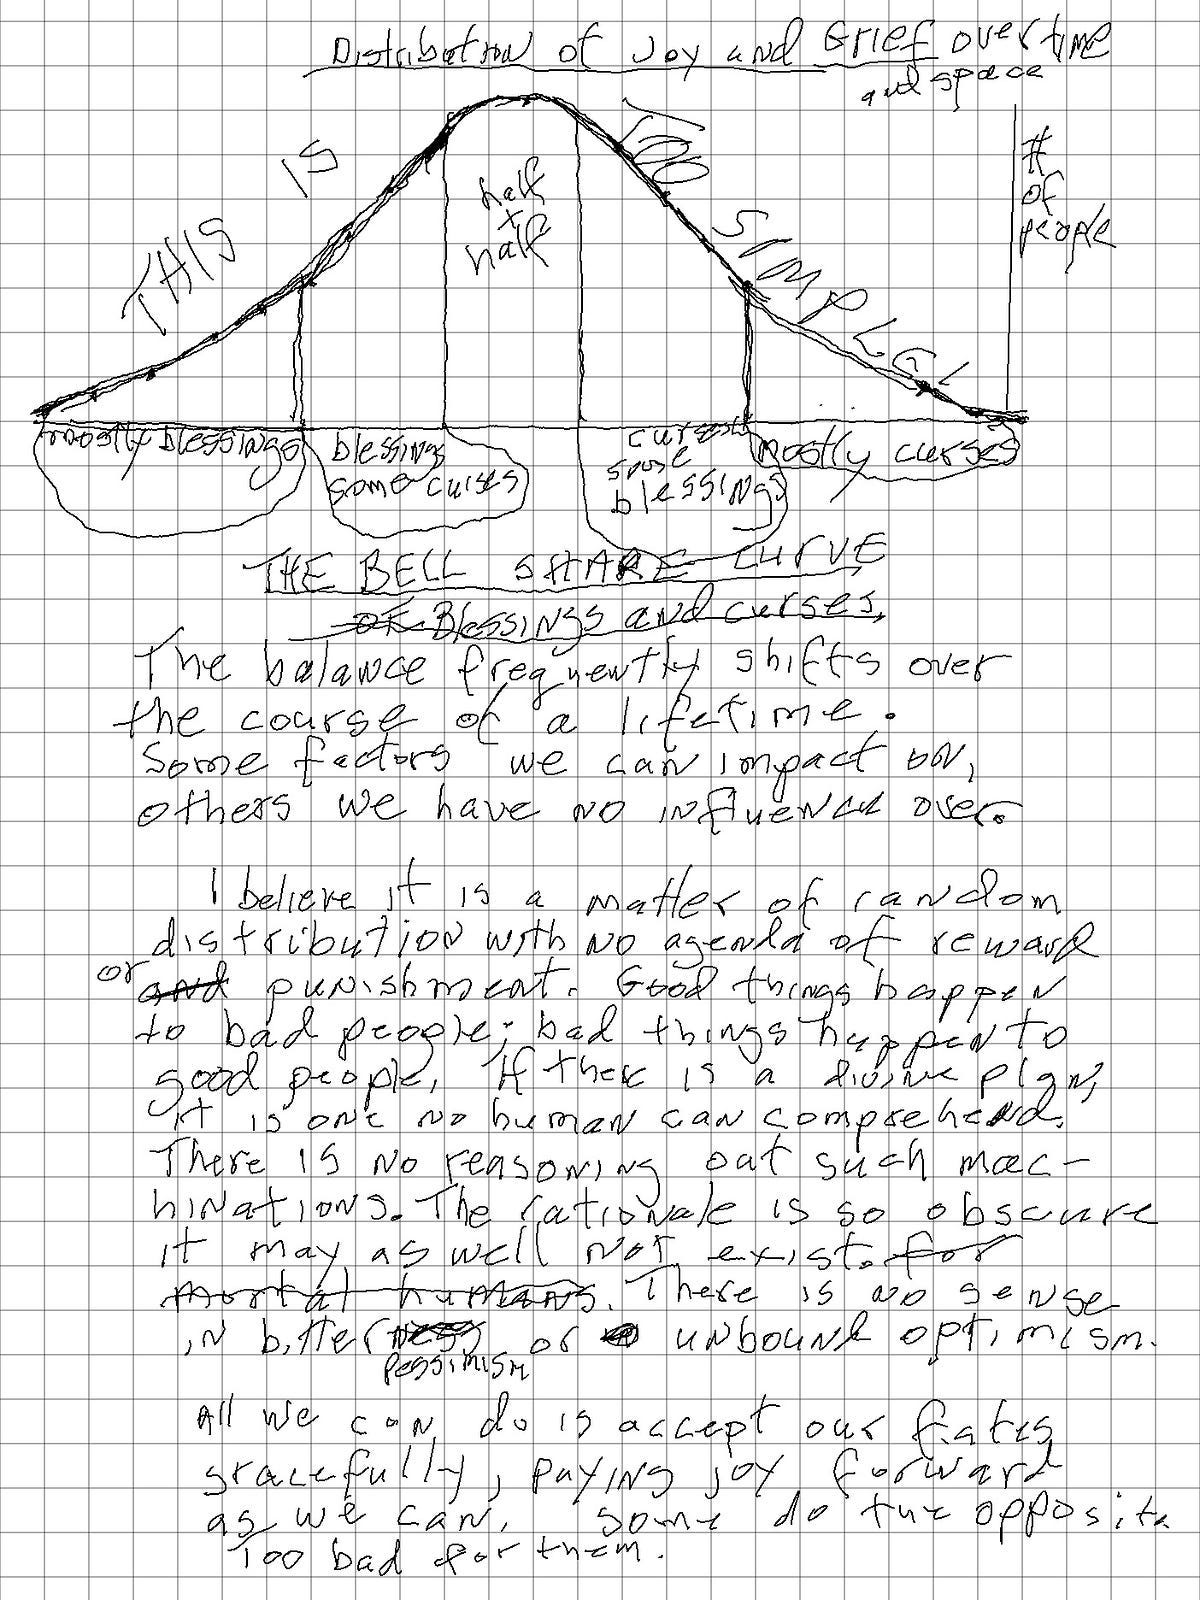 Distribution of Joy and Grief over time
and space
THIS IS TOO SIMPLE!
# of people
half + half
mostly blessings
blessings
some curses
curses
some
blessings
mostly curses
THE BELL SHAPE CURVE
OF Blessings and curses.
The balance frequently shifts over
the course of a lifetime.
Some factors we can impact on,
others we have no influence over.
I believe it is a matter of random
distribution with no agenda of reward
or and punishment. Good things happen
to bad people; bad things happen to
good people. If there is a divine plan,
it is one no human can comprehend.
There is no reasoning out such mac-
hinations. The rationale is so obscure
it may as well not exist. for
mortal humans. There is no sense
in bitterness or unbound optimism.
pessimism
All we can do is accept our fates
gracefully, paying joy forward
as we can. Some do the opposite
Too bad for them.